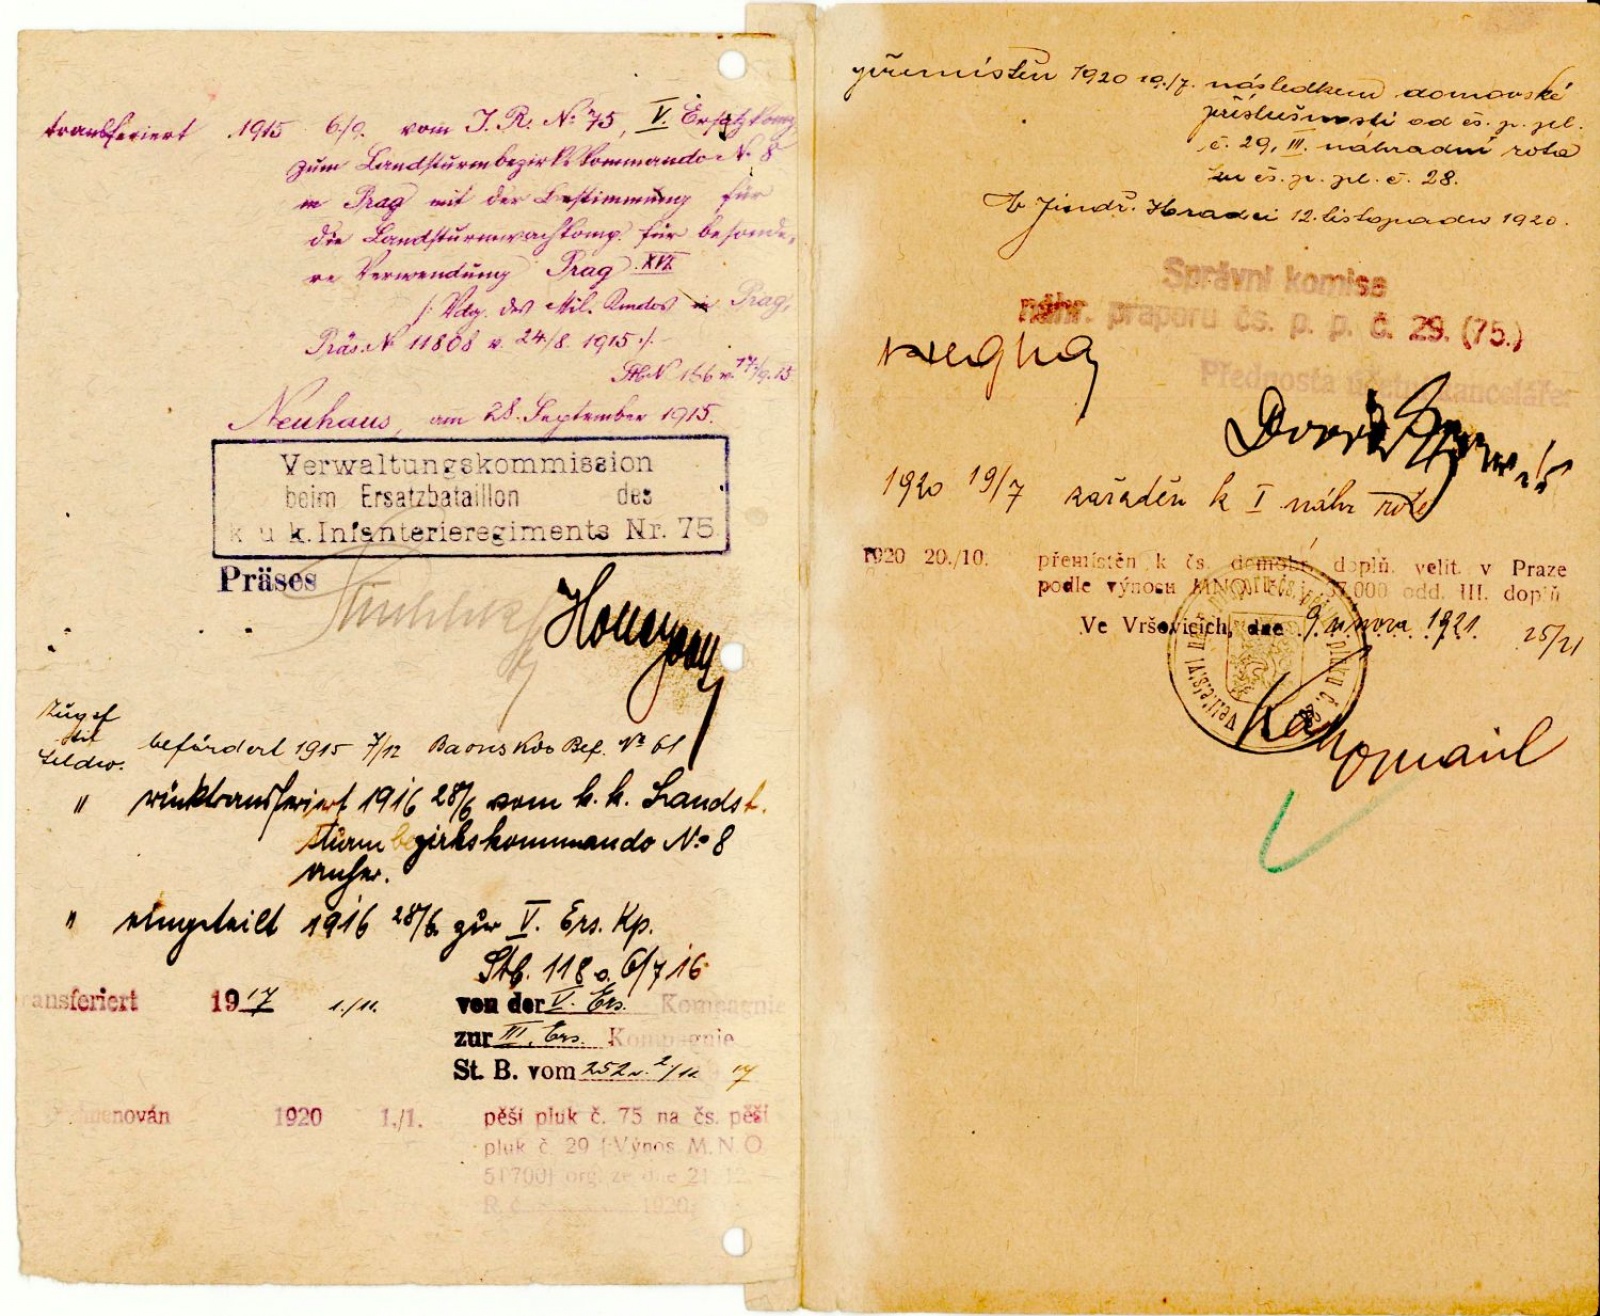 transferiert 1915 6./9. vom I. R. No 75, V. Ersatzkomp
zum Landsturmbezirkskommando No. 8
in Prag mit der Bestimmung für
die Landsturmwachkomp. für besonde-
re Verwendung Prag XVI
/: Vdg. des Mil. Kmdos in Prag,
Präs. No 11808 v. 24./8. 1915 :/.
Neuhaus, am 28. September 1915.
Verwaltungskommission
beim Ersatzbataillon des
k. u. k. Infanterieregiments Nr. 75
Präses
Zugsf
tit
Feldw. befördert 1915 7/12 Baonskdo Bef. No 61
" rücktransferiert 1916 28/6 vom k. k. Landst.
sturmbezirkskommando No 8
anher.
" eingeteilt 1916 28/6. zur V. Ers. Kp.
Stb. 118 v. 6/7 16
ansferiert 1917 1./11. von der V. Ers. Kompagnie
zur III. Ers. Kompagnie
St. B. vom 252 v. 2/11 17
menován 1920 1./1. pěší pluk č. 75 na čs. pěší
pluk č. 29 (Výnos M. N. O.
51700) org. ze dne 21. 12.
R. č. 1920.
přemístěn 1920 19./7. následkem domovské
příslušnosti od čs. p. pl.
č. 29, III. náhradní rota
ku čs. p. pl. č. 28.
V Jindř. Hradci 12. listopadu 1920.
Správní komise
náhr. praporu čs. p. p. č. 29. (75.)
Přednosta účetní kanceláře:
1920 19/7 zařaděn k I náhr rotě
1920 20./10. přemístěn k čs. domobr. doplň. velit. v Praze
podle výnosu MNO 37.000 odd. III. doplň
Ve Vršovicích, dne 9 února 1921. 25/21